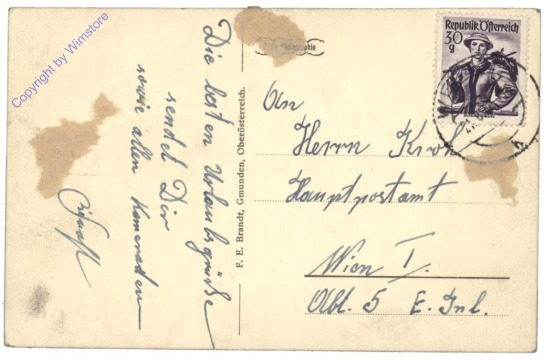 Copyright by Wimstore
Die besten Urlaubsgrüße
sendet Dir
sowie allen Kameraden
F. E. Brandt, Gmunden, Oberösterreich.
Republik Österreich
30
g
An
Herrn
Hauptpostamt
Wien I.
Abt. 5 E. Inl.